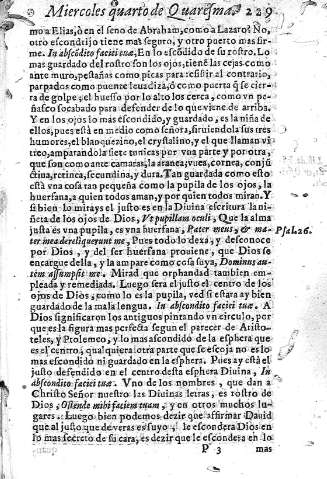 Miercoles quarto de Quaresma. 229
mo a Elias, ò en el seno de Abraham, como a Lazaro? No,
otro escondijo tiene mas seguro, y otro puerto mas fir-
me. In abscõdito faciei tuæ, En lo escõdido de su rostro. Lo
mas guardado del rostro son los ojos, tiene las cejas como
ante muro, pestañas como picas para resistir al contrario,
parpados como puente leuadiza, ò como puerta q̃ se cier-
ra de golpe; el huesso por lo alto los cerca, como vn pe-
ñasco socabado para defender de lo que viene de arriba.
Y en los ojos lo mas escondido, y guardado, es la niña de
ellos, pues està en medio como señora, siruiendola sus tres
humores, el blanquezino, el crystalino, y el que llaman vi-
treo, amparandola siete tunicas por vna parte y por otra,
que son como ante camaras, la aranea, vues, cornea, conju
ctiua, retinea, secundina, y dura. Tan guardada como esto
està vna cosa tan pequeña como la pupila de los ojos, la
huerfana, a quien todos aman, y por quien todos miran. Y
si bien lo mirays el justo es en la Diuina escritura la ni-
ñeta de los ojos de Dios, Vt pupillam oculi, Que la alma
justa es vna pupila, es vna huerfana, Pater meus, & ma-
ter mea dereliquerunt me, Pues todo lo dexa, y desconoce
por Dios, y del ser huerfana prouiene, que Dios se
encargue della, y la ampare como cosa suya, Dominus au-
tem assumpsit me. Mirad que orphandad tambien em-
pleada y remediada. Luego sera el justo el centro de los
ojos de Dios, como lo es la pupila, ved si estarà ay bien
guardado de la mala lengua. In abscondito faciei tuæ. A
Dios significaron los antiguos pintando vn circulo, por
que es la figura mas perfecta segun el parecer de Aristo-
teles, y Ptolemeo, y lo mas ascondido de la esphera que
es el centro; qualquiera otra parte que se escoja no es lo
mas escondido ni guardado en la esphera. Pues ay està el
justo defendido en el centro desta esphera Diuina, In
abscondito faciei tuæ. Vno de los nombres, que dan a
Christo Señor nuestro las Diuinas letras, es rostro de
Dios, Ostende mihi faciem tuam, y en otros muchos lu-
gares. Luego bien podemos dezir que assirmar Dauid
que al justo que de veras es suyo, le escondera Dios en
lo mas secreto de su cara, es dezir que le escondera en lo
P 3 mas
Psal. 26.